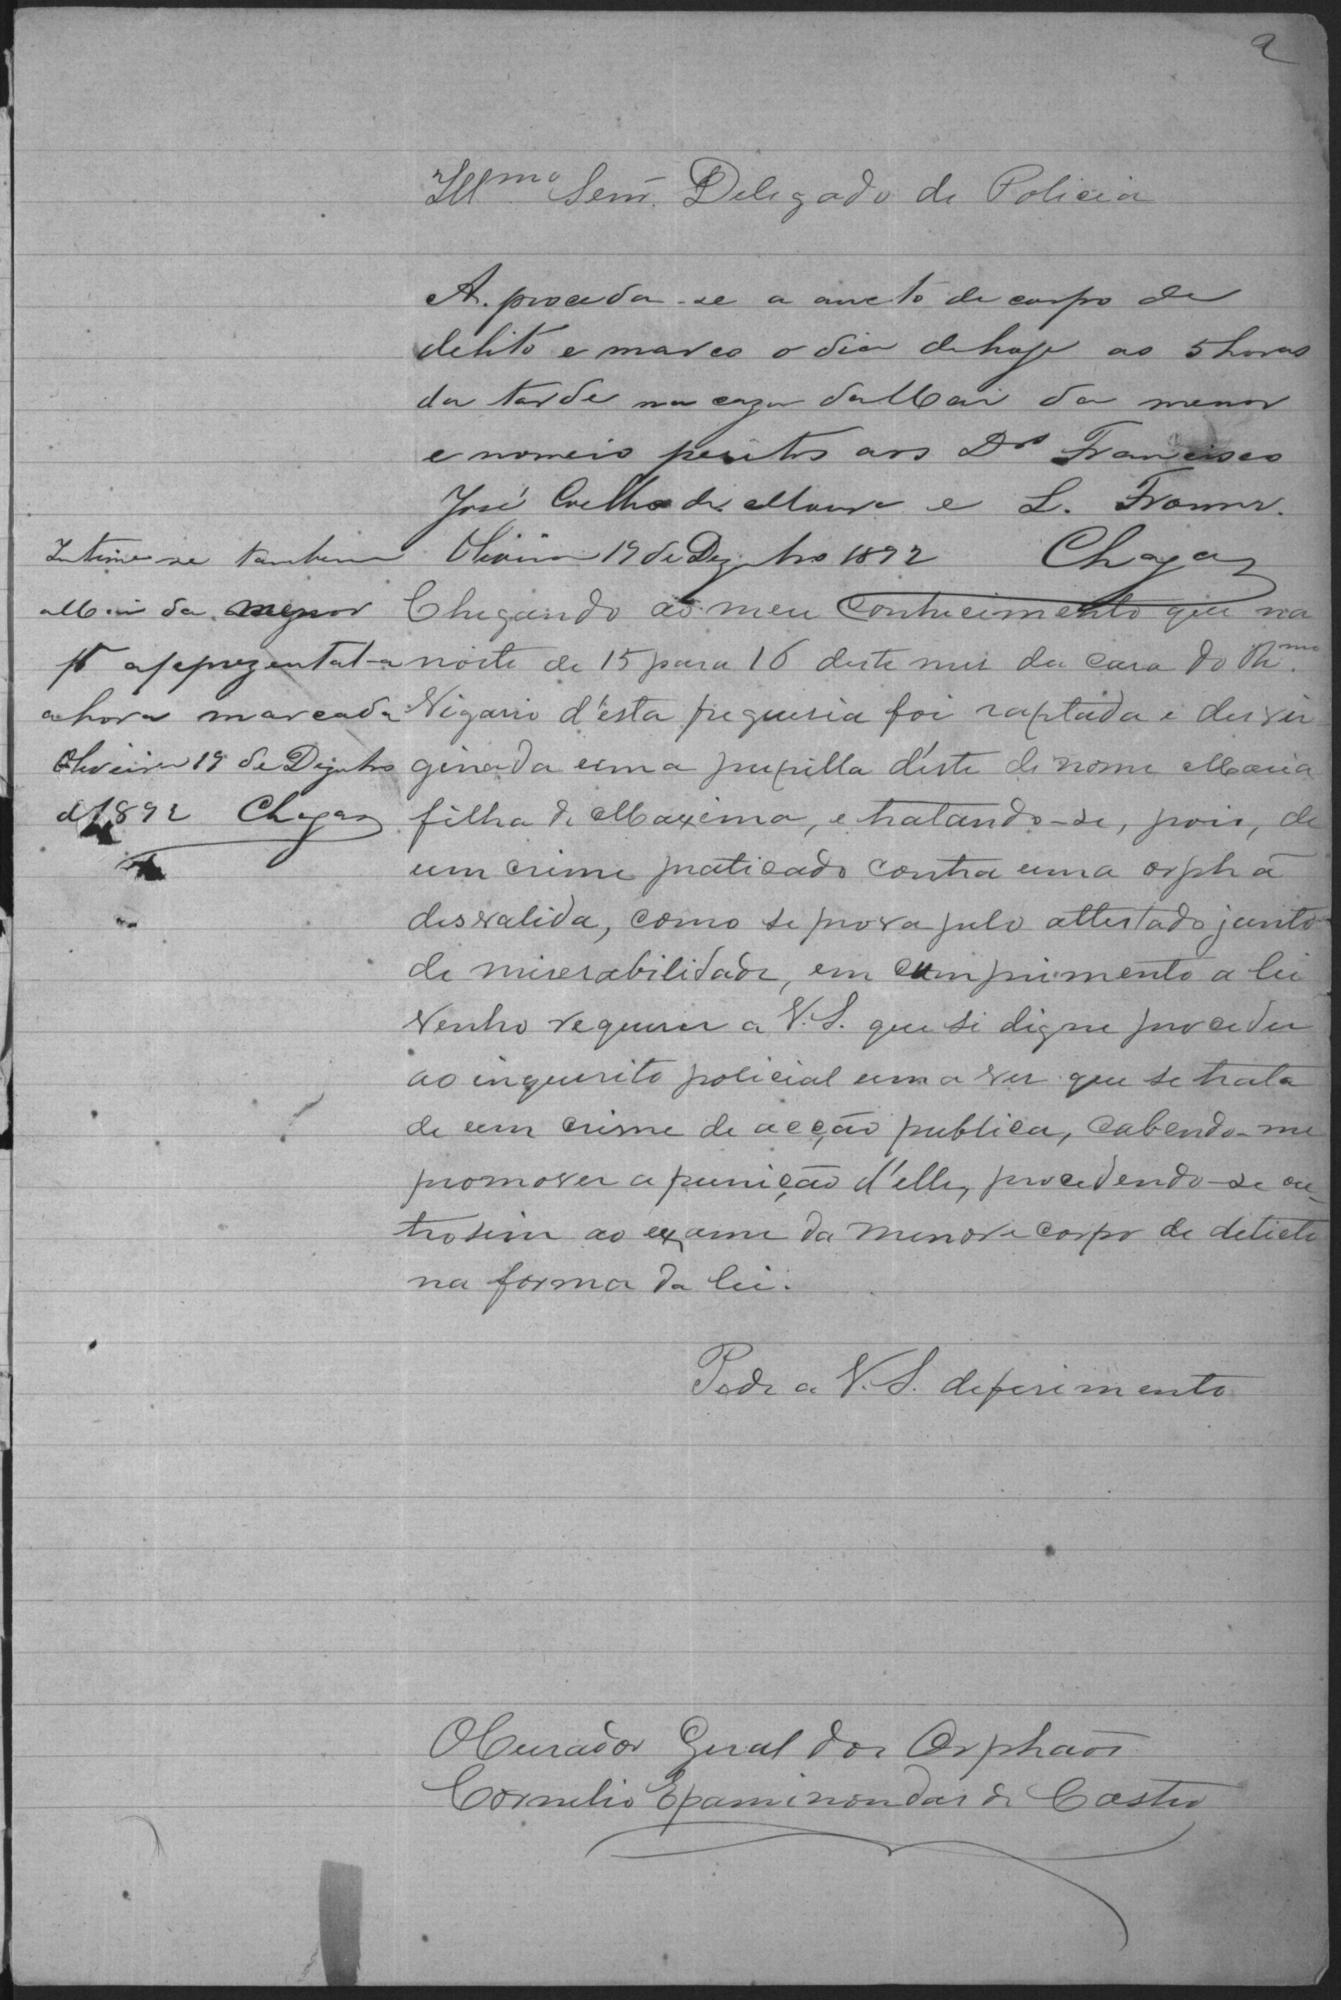 2
Illmo Senr. Delegado de Policia
A. proceda-se a aucto de corpo de
delito e marco o dia de hoje as 5 horas
da tarde na caza da Mai da menor
e nomeio peritos aos Drs Francisco
José Coelho de Moura e L. Fromm.
Oliveira 19 de Dezembro 1892 Chagas
Intime-se tambem
a Mai da menor
pa apprezental-a
a hora marcada
Oliveira 19 de Dezembro
d 1892 Chagas
Chegando ao meu conhecimento que na
noite de 15 para 16 deste mes da casa do Rmo
Vigario d'esta freguesia foi raptada e desvir
ginada uma pupilla d'este de nome Maria
filha de Maxima, e tratando-se, pois, de
um crime praticado contra uma orphã
desvalida, como se prova pelo attestado junto
de miserabilidade, em cumprimento a lei
venho requerer a V. S. que si digne proceder
ao inquerito policial uma ves que se trata
de um crime de acção publica, cabendo-me
promover a punição d'elle, procedendo-se ou_
trosim ao exame da menor e corpo de delicto
na forma da lei.
Pede a V. S. deferimento
O Curador Geral dos Orphaõs
Cornelio Epaminondas de Castro